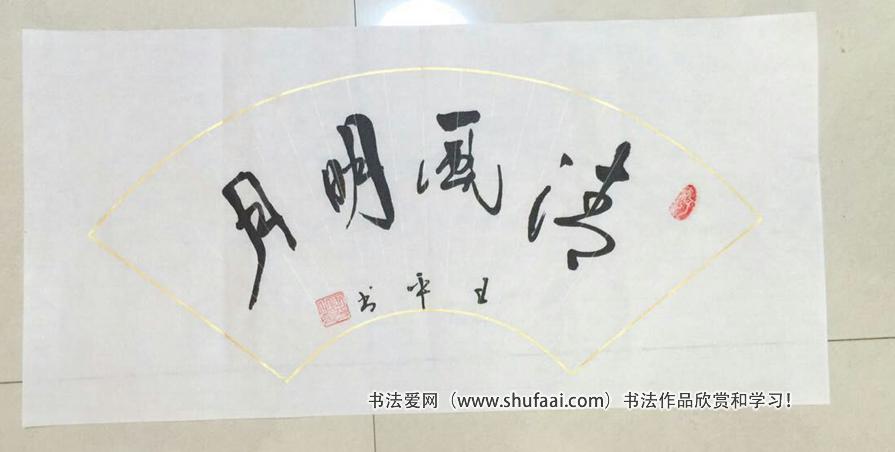 清风明月
王平书
书法爱网（www.shufaai.com）书法作品欣赏和学习！